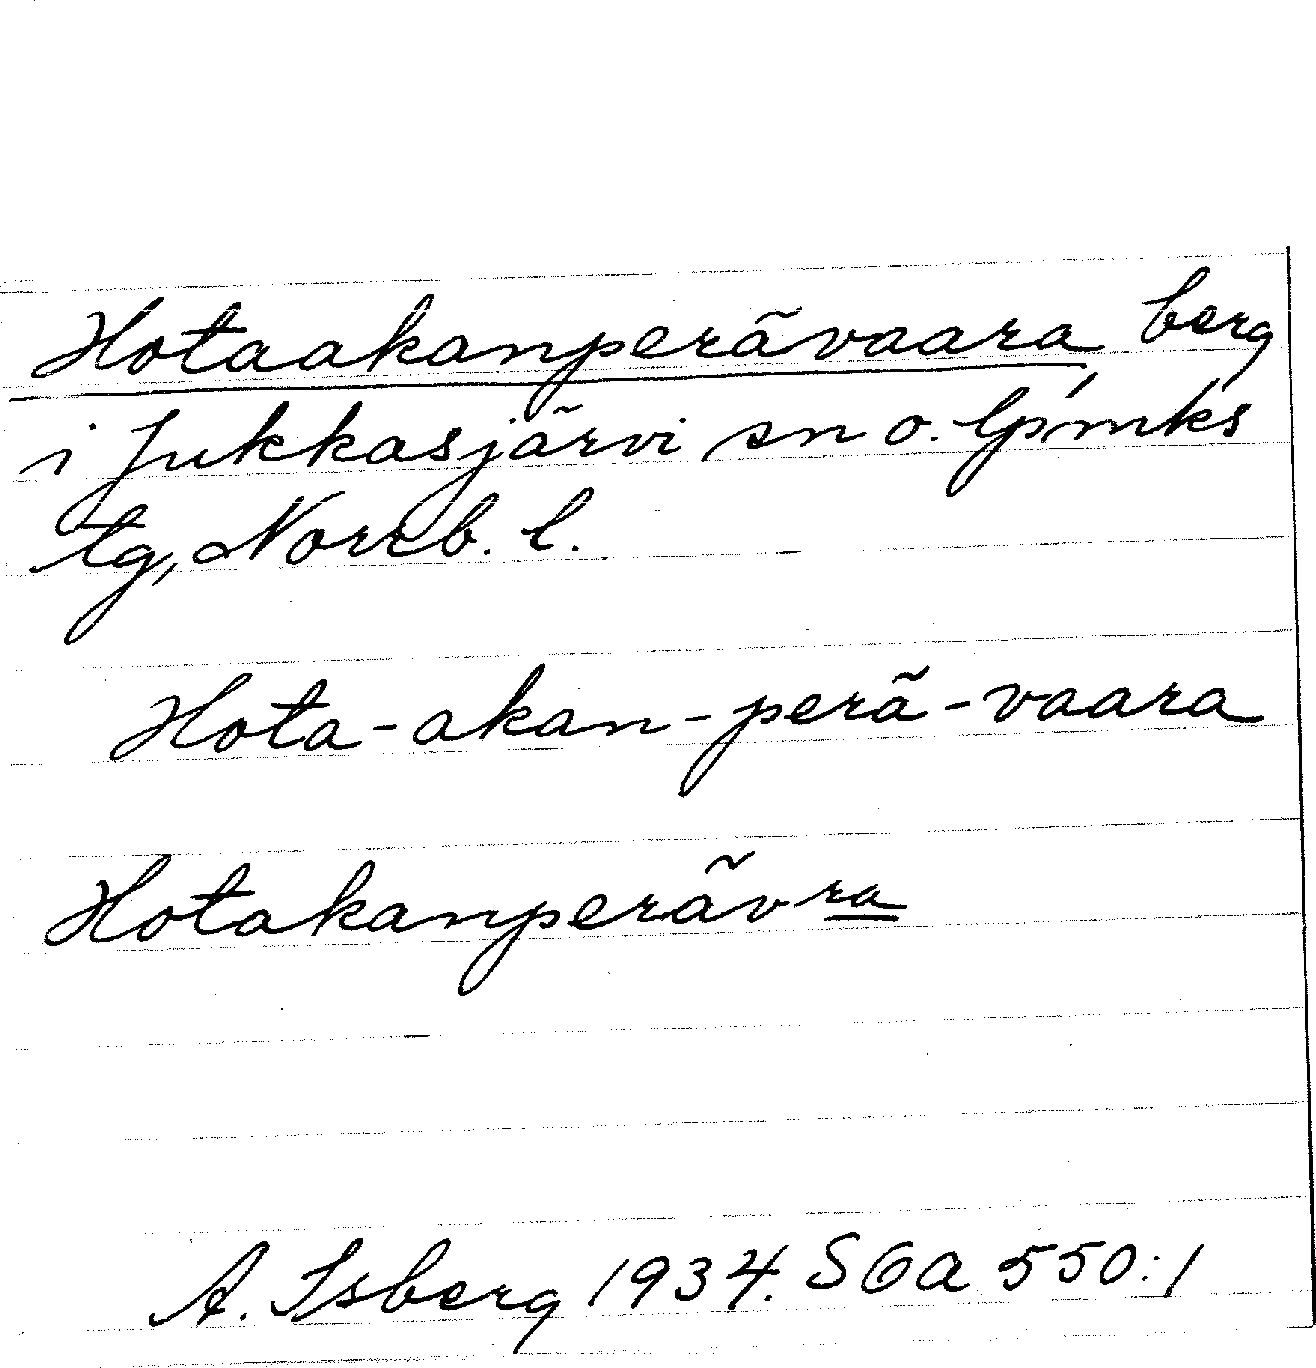 Hotaakanperävaara berg
i Jukkasjärvi sn o. lp'mks
tg, Norrb. l.
Hota-akan-perä-vaara
Hotakanperävra
A. Isberg 1934. SOA 550:1